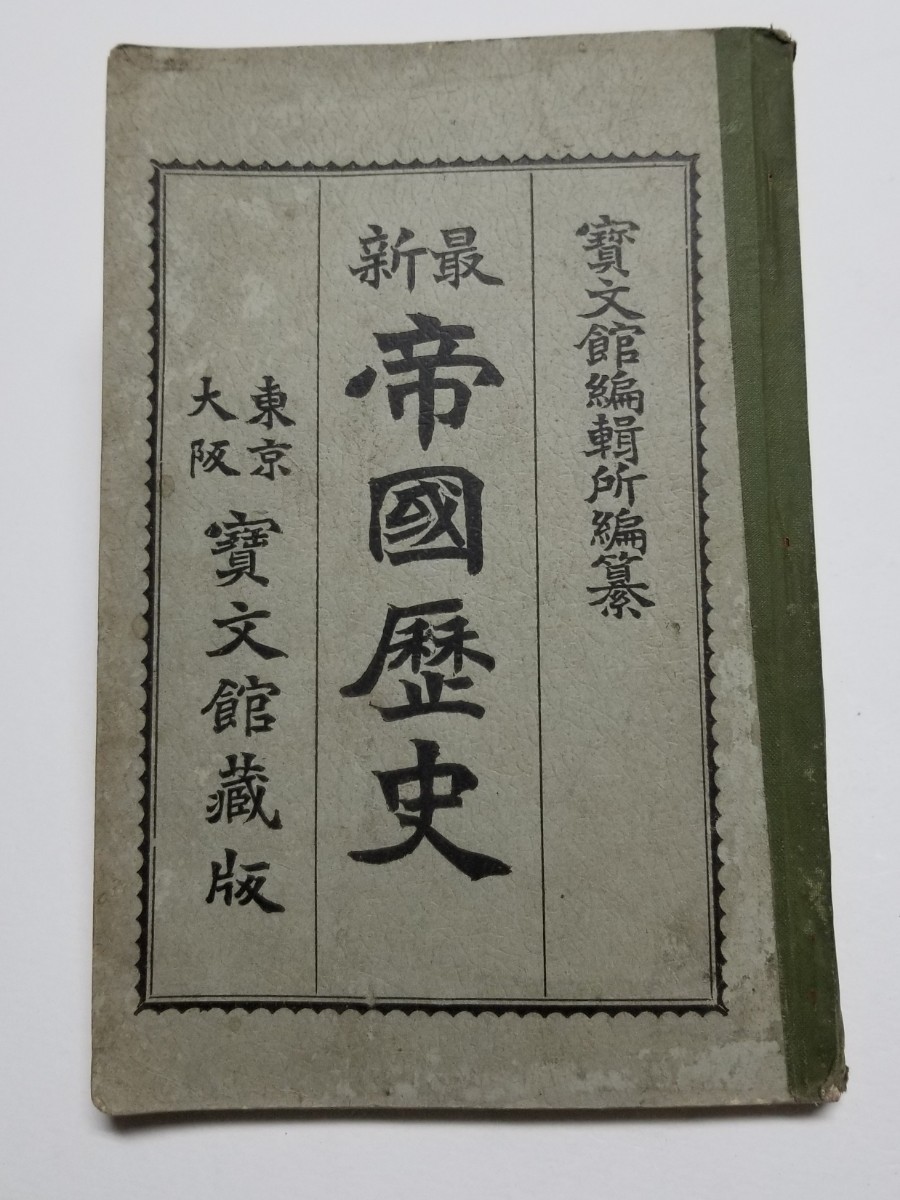 寶文館編輯所編纂
最新
帝國歷史
東京
大阪
寶文館藏版